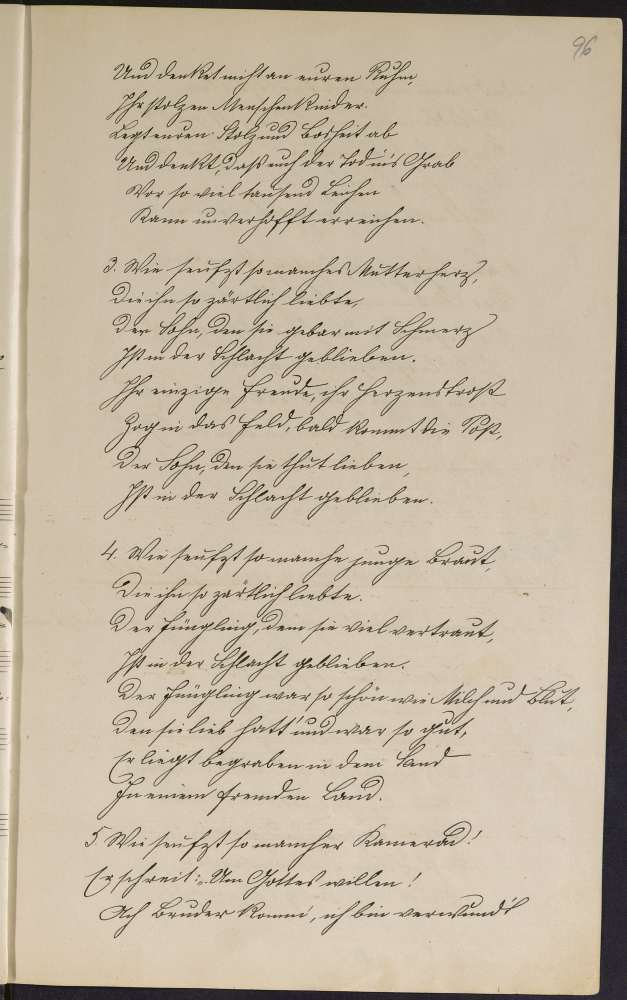 96
Und denket nicht an euren Ruhm,
Ihr stolzen Menschenkinder.
Legt euren Stolz und Bosheit ab
Und denkt, daß euch der Tod ins Grab
Vor so viel tausend Leichen
Kann unverhofft erreichen.
3. Wie seufzt so manches Mutterherz,
Die ihn so zärtlich liebte,
Der Sohn, den sie gebar mit Schmerz
Ist in der Schlacht geblieben.
Ihr einzige Freude, ihr Herzenstrost
Zog in das Feld, bald kommt die Post,
Der Sohn, den sie thut lieben,
Ist in der Schlacht geblieben.
4. Wie seufzt so manche junge Braut,
Die ihn so zärtlich liebte.
Der Jüngling, dem sie viel vertraut,
Ist in der Schlacht geblieben.
Der Jüngling war so schön wie Milch und Blut,
Den sie lieb hatt' und war so gut,
Er liegt begraben in dem Sand
In einem fremden Land.
5. Wie seufzt so mancher Kamerad!
Er schreit: „Um Gottes willen!
Ach Bruder komm', ich bin verwund't